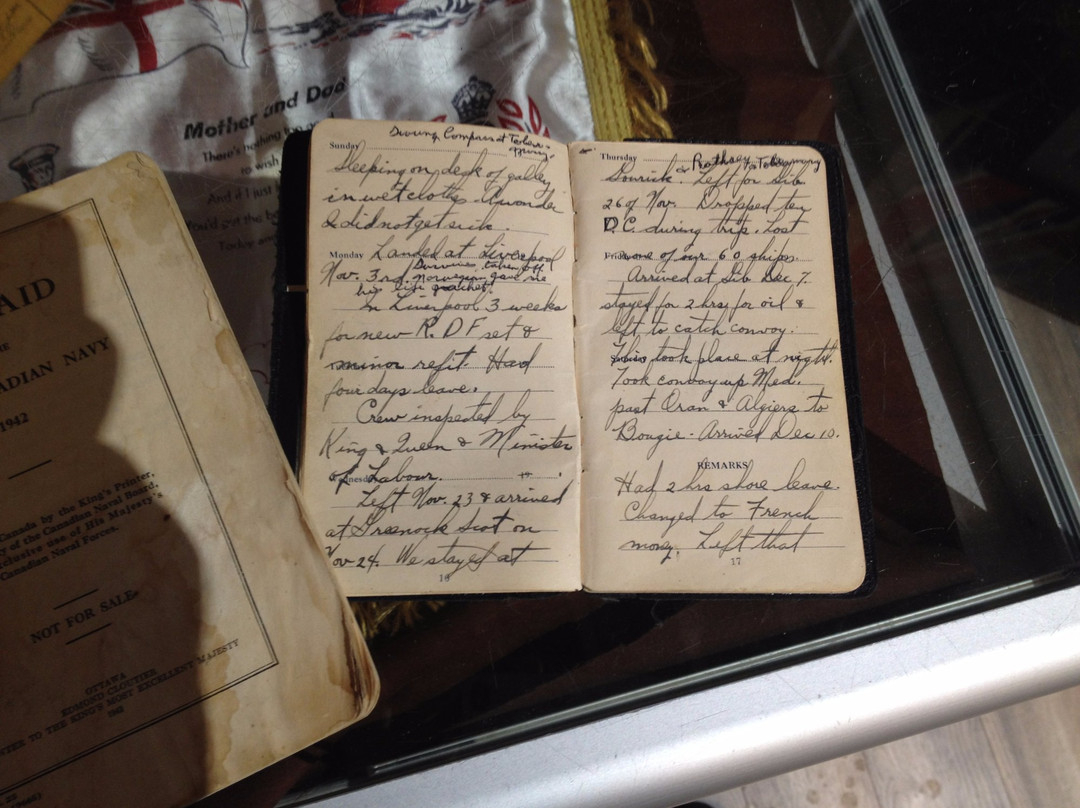 Mother and Dad
There's nothing
to wish
And if I just
You'd got the be
Today an
AID
THE
ADIAN NAVY
1942
Canada by the King's Printer,
y of the Canadian Naval Board,
xclusive use of His Majesty's
Canadian Naval Forces.
NOT FOR SALE
OTTAWA
EDMOND CLOUTIER
TER TO THE KING'S MOST EXCELLENT MAJESTY
Swung Compass at Tober-
mory.
Sunday
Sleeping on deck of galley
in wet clothes. A wonder
I did not get sick.
Monday Landed at Liverpool
Nov. 3rd Survivors taken off.
Norwegian gave me
his life jacket.
In Liverpool 3 weeks
for new R.D.F set &
minor refit. Had
four days leave.
Crew inspected by
King & Queen & Minister
of Labour.
Left Nov. 23 & arrived
at Greenock Scot on
Nov 24. We stayed at
16
Thursday & Rothsay & Tobermory
Gourick. Left for Gib
26 of Nov. Dropped few
D.C. during trip. Lost
none of our 60 ships.
Arrived at Gib Dec 7.
stayed for 2 hrs for oil &
left to catch convoy.
This took place at night.
Took convoy up Med.
past Oran & Algiers to
Bougie. Arrived Dec 10.
REMARKS
Had 2 hrs shore leave.
Changed to French
money. Left that
17